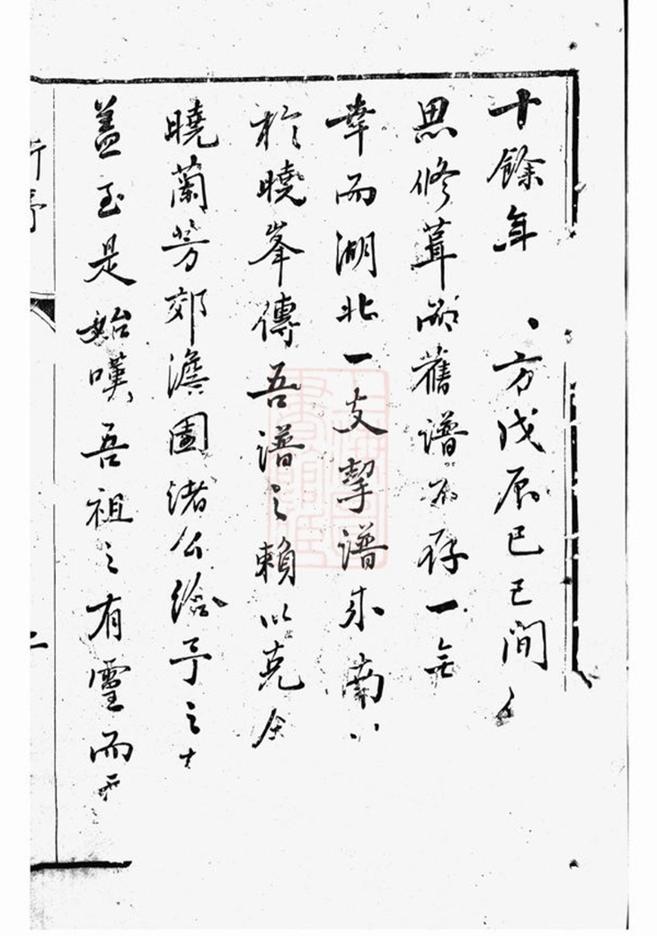 十餘年 方戊辰己巳間
思修葺而舊譜不存一
幸而湖北一支挈譜來南
於曉峯傳吾譜之賴以克全
曉蘭芳郊澹園諸公給予之
蓋至是始嘆吾祖之有靈而